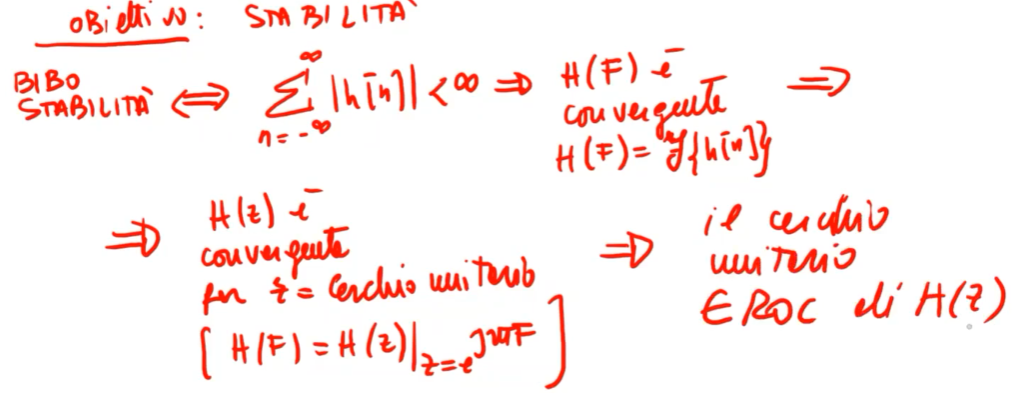 Obiettivo: STABILITÀ
BIBO STABILITÀ ⟺ ∑_{n=-∞}^{∞} |h[n]| < ∞ ⟹ H(F) è convergente H(F) = ℱ{h[n]} ⟹
⟹ H(z) è convergente per z = Cerchio unitario [H(F) = H(z)|_{z=e^{j2πF}}] ⟹ il cerchio unitario ∈ ROC di H(z)